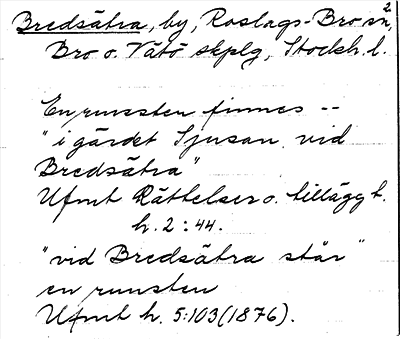 2
Bredsätra, by, Roslags-Bro sn,
Bro o. Vätö skplg, Stockh. l.
En runsten finnes --
"i gärdet Sjusan vid
Bredsätra"
Ufmt Rättelser o. tillägg t.
h. 2:44.
"vid Bredsätra står"
en runsten
Ufmt h. 5:103 (1876).